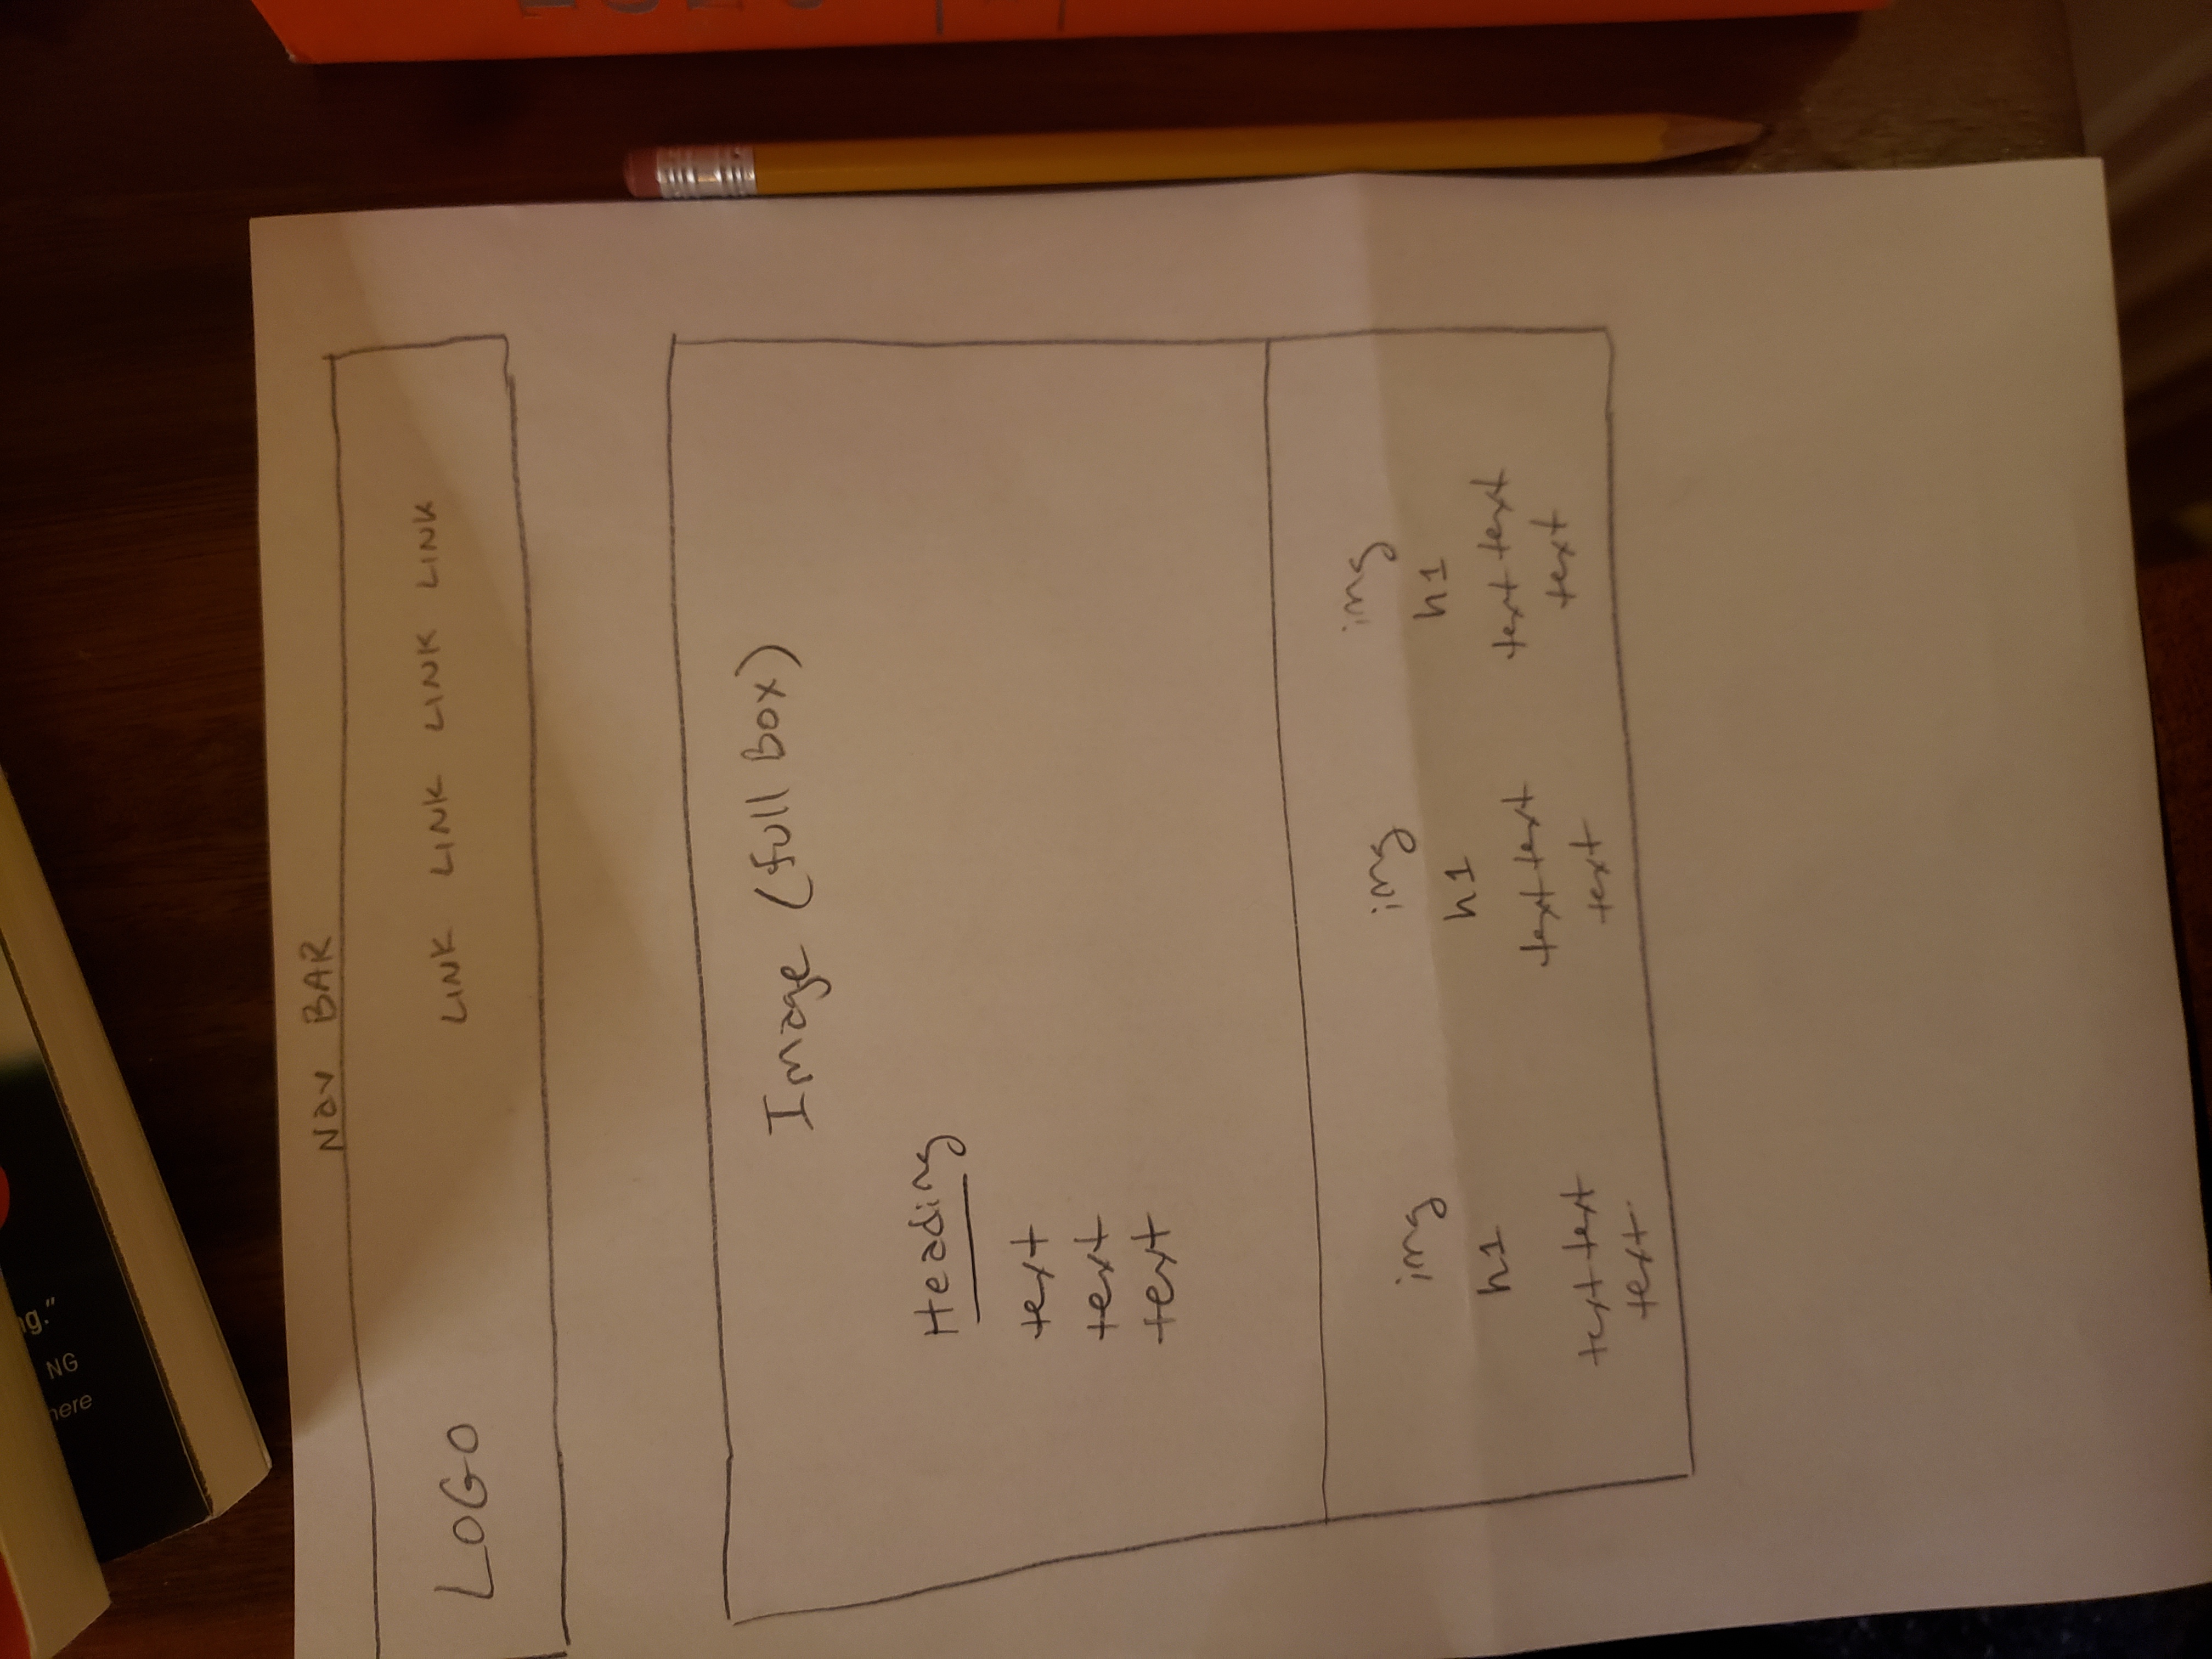 ng."
NG
here
Nav BAR
LOGO LINK LINK LINK LINK
Image (full Box)
Heading
text
text
text
img img img
h1 h1 h1
text text text text text text
text text text